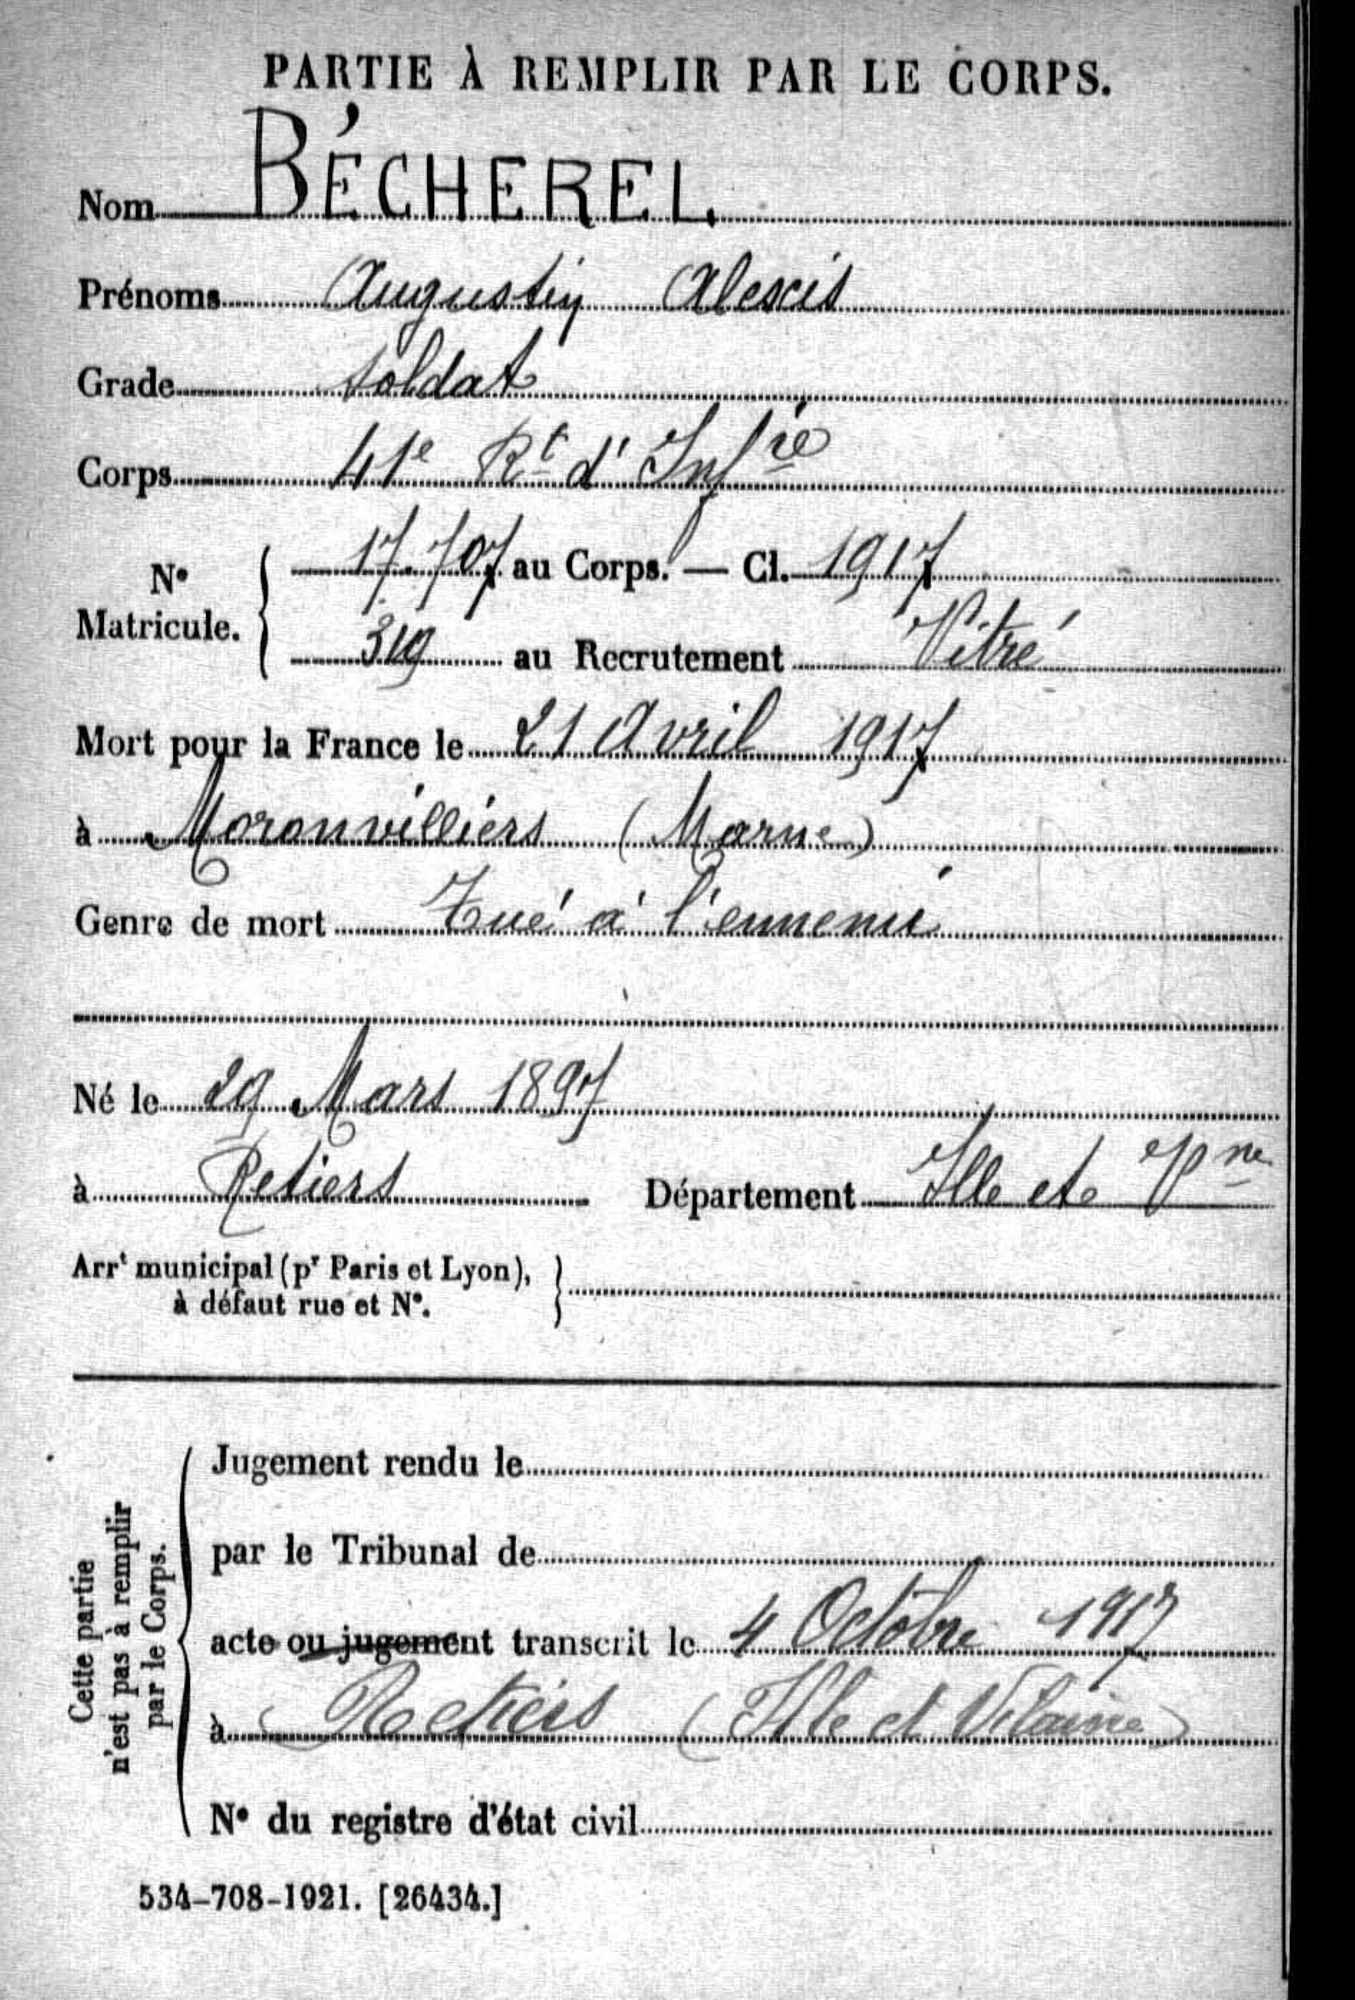 PARTIE À REMPLIR PAR LE CORPS.
Nom BÉCHEREL
Prénoms Augustin Alexis
Grade Soldat
Corps 41e Rt d'Infrie
No Matricule. { 17.707 au Corps. — Cl. 1917
319 au Recrutement Vitré
Mort pour la France le 21 Avril 1917
à Moronvilliers (Marne)
Genre de mort Tué à l'ennemi
Né le 29 Mars 1897
à Retiers Département Ille et Vne
Arrt municipal (pr Paris et Lyon), }
à défaut rue et No.
Cette partie
n'est pas à remplir
par le Corps.
Jugement rendu le
par le Tribunal de
acte ou jugement transcrit le 4 Octobre 1917
à Retiers (Ille et Vilaine)
No du registre d'état civil
534-708-1921. [26434.]